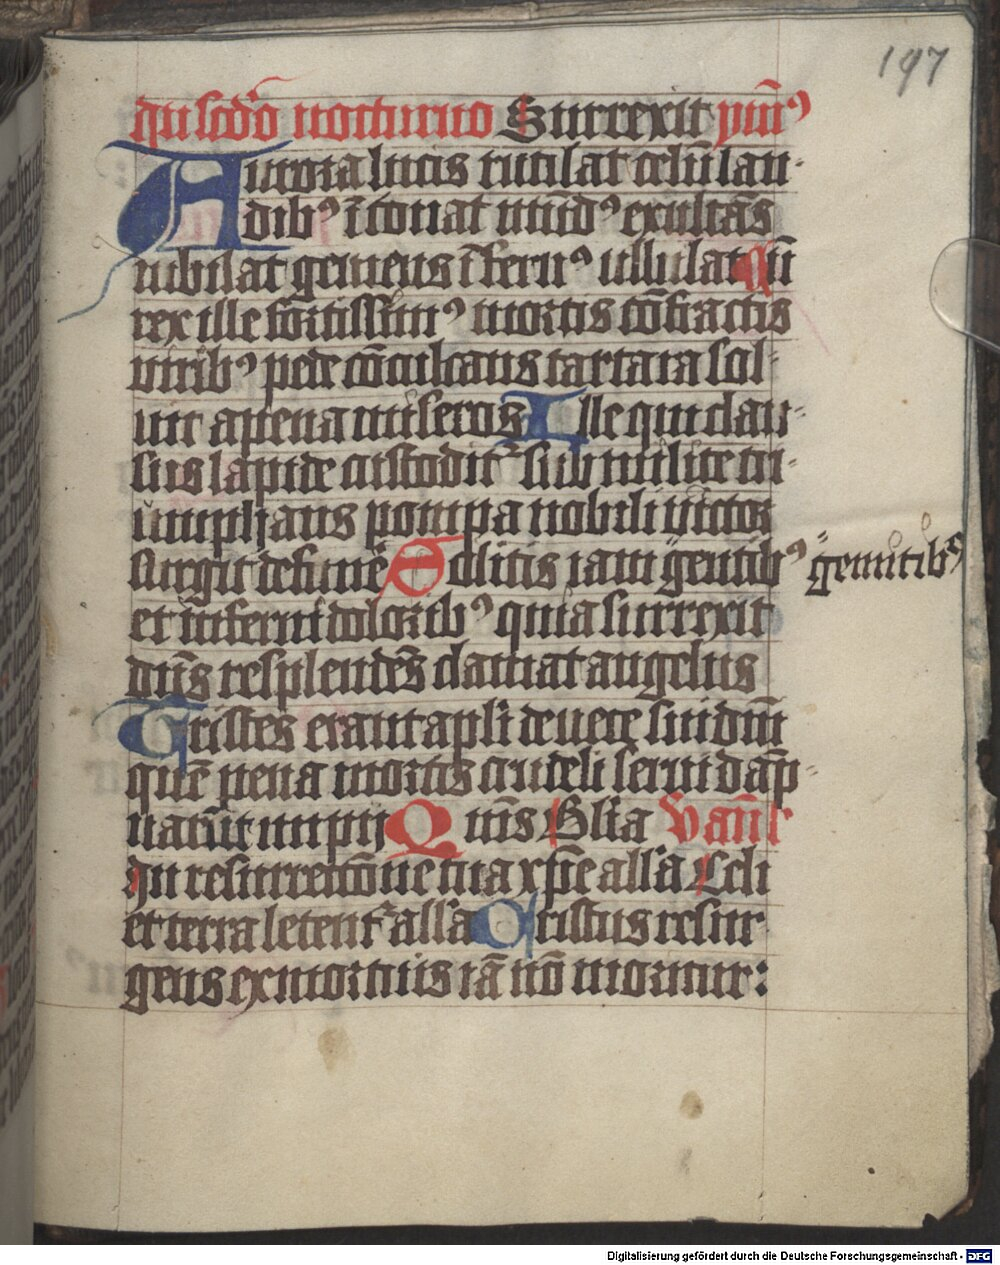 197
Jn scdo nocturno Surrexit ymꝰ
Aurora lucis rutilat celū lau-
dibꝰ ītonat mūdꝰ exultās
iubilat gemens īfernꝰ ullulat Cū
rex ille fortissimꝰ mortis cōfractis
uiribꝰ pede cōculcans tartara sol-
uit apena miseros Ille qui clau-
sus lapide custodit᷑ sub milite tri
umphans pompa nobili uictor
surgit de funē Solutis iam gentibꝰ gemitibꝰ
et inferni doloribꝰ quia surrexit
dn̄s resplendēs clamat angelus
Tristes erant apli de nece sui dn̄i
quē pena mortis crudeli serui dāp-
narūt impij Qn̄s Glia
Jn resurrectōne tua xp̄e alla Celi
et terra letent᷑ alla Cristus resur
gens ex mortuis iā nō moritur:
Digitalisierung gefördert durch die Deutsche Forschungsgemeinschaft - DFG